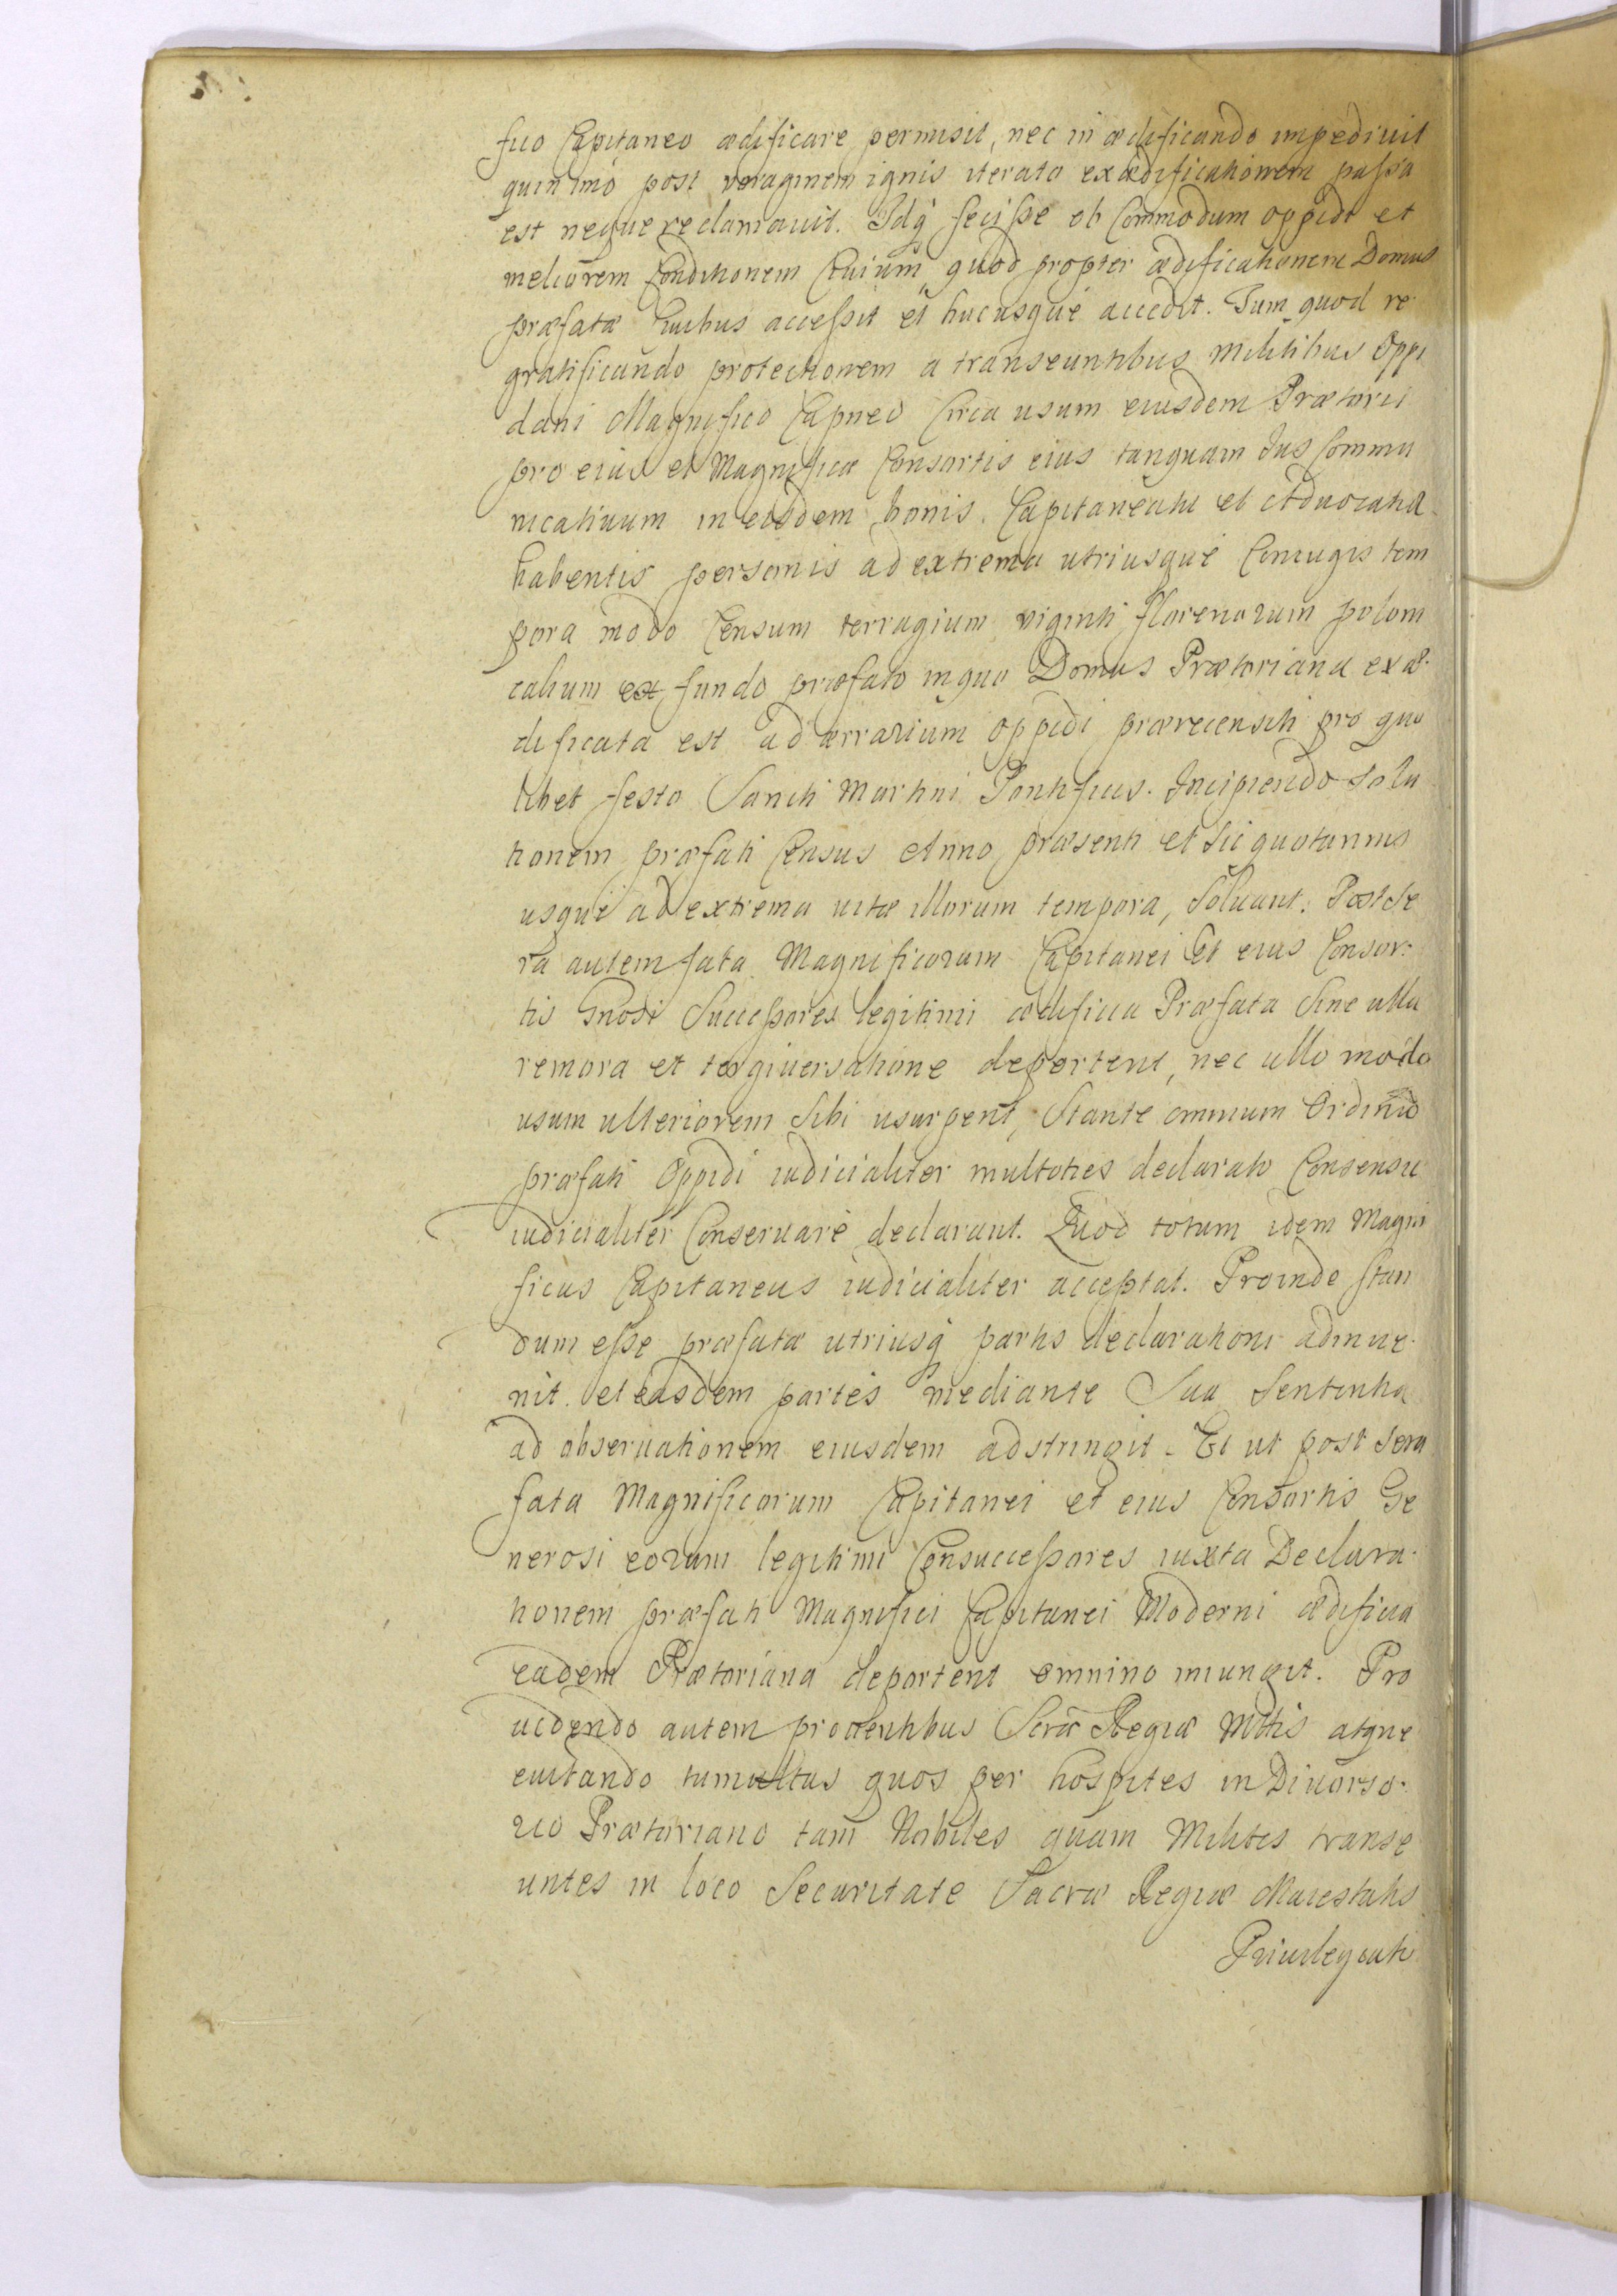 suo Capitaneo ædificare permisit, nec in ædificando impediuit
quin imò post voraginem ignis iterato exædificationem passa
est neque reclamauit. Idq́ fecisse ob Commodum oppidi et
meliorem Conditionem Ciuium, quod propter ædificationem Domus
præfatæ Ciuibus accessit et hucusque accedit. Tum quod re
gratificando protectionem a transeuntibus militibus Oppi
dani Magnifico Capneo Circa usum eiusdem Prætorii
pro eius et Magnificæ Consortis eius tanquam Jus Commu
nicatiuum in eisdem bonis Capitaneatu et Aduocatia
habentis personis ad extrema utriusque Coniugis tem
pora modo Censum terragium viginti florenorum poloni
calium ex fundo præfato in quo Domus Prætoriana exæ
dificata est ad ærrarium oppidi prærecensiti pro quo
libet festo Sancti Martini Pontificis. Incipiendo Solu
tionem præfati Census Anno præsenti et sic quotannis
usque ad extrema uitæ illorum tempora, Soluant. Post Se
ra autem fata Magnificorum Capitanei et eius Consor-
tis Gnosi Successores legitimi ædificia Præfata Sine ulla
remora et tergiuersatione deportent, nec ullo modo
usum ulteriorem Sibi usurpent, Stante omnium Ordinũ
præfati Oppidi iudicialiter multoties declarato Consensu
iudicialiter Conseruare declarant. Quod totum idem Magni
ficus Capitaneus iudicialiter acceptat. Proinde stan
dum esse præfatæ utriusq́ partis declarationi adinue-
nit. et easdem partes mediante Sua Sententia
ad obseruationem eiusdem adstringit. Et ut post sera
fata Magnificorum Capitanei et eius Consortis Ge
nerosi eorum legitimi Consuccessores iuxta Declara-
tionem præfati Magnifici Capitanei Moderni ædificia
eadem Prætoriana deportent omnino iniungit. Pro
uidendo autem prouentibus Scræ Regiæ Mttis atque
euitando tumultus quos per hospites in Diuorso-
rio Prætoriano tam Nobiles quam Milites transe
untes in loco Securitate Sacræ Regiæ Maiestatis
Priuilegiati